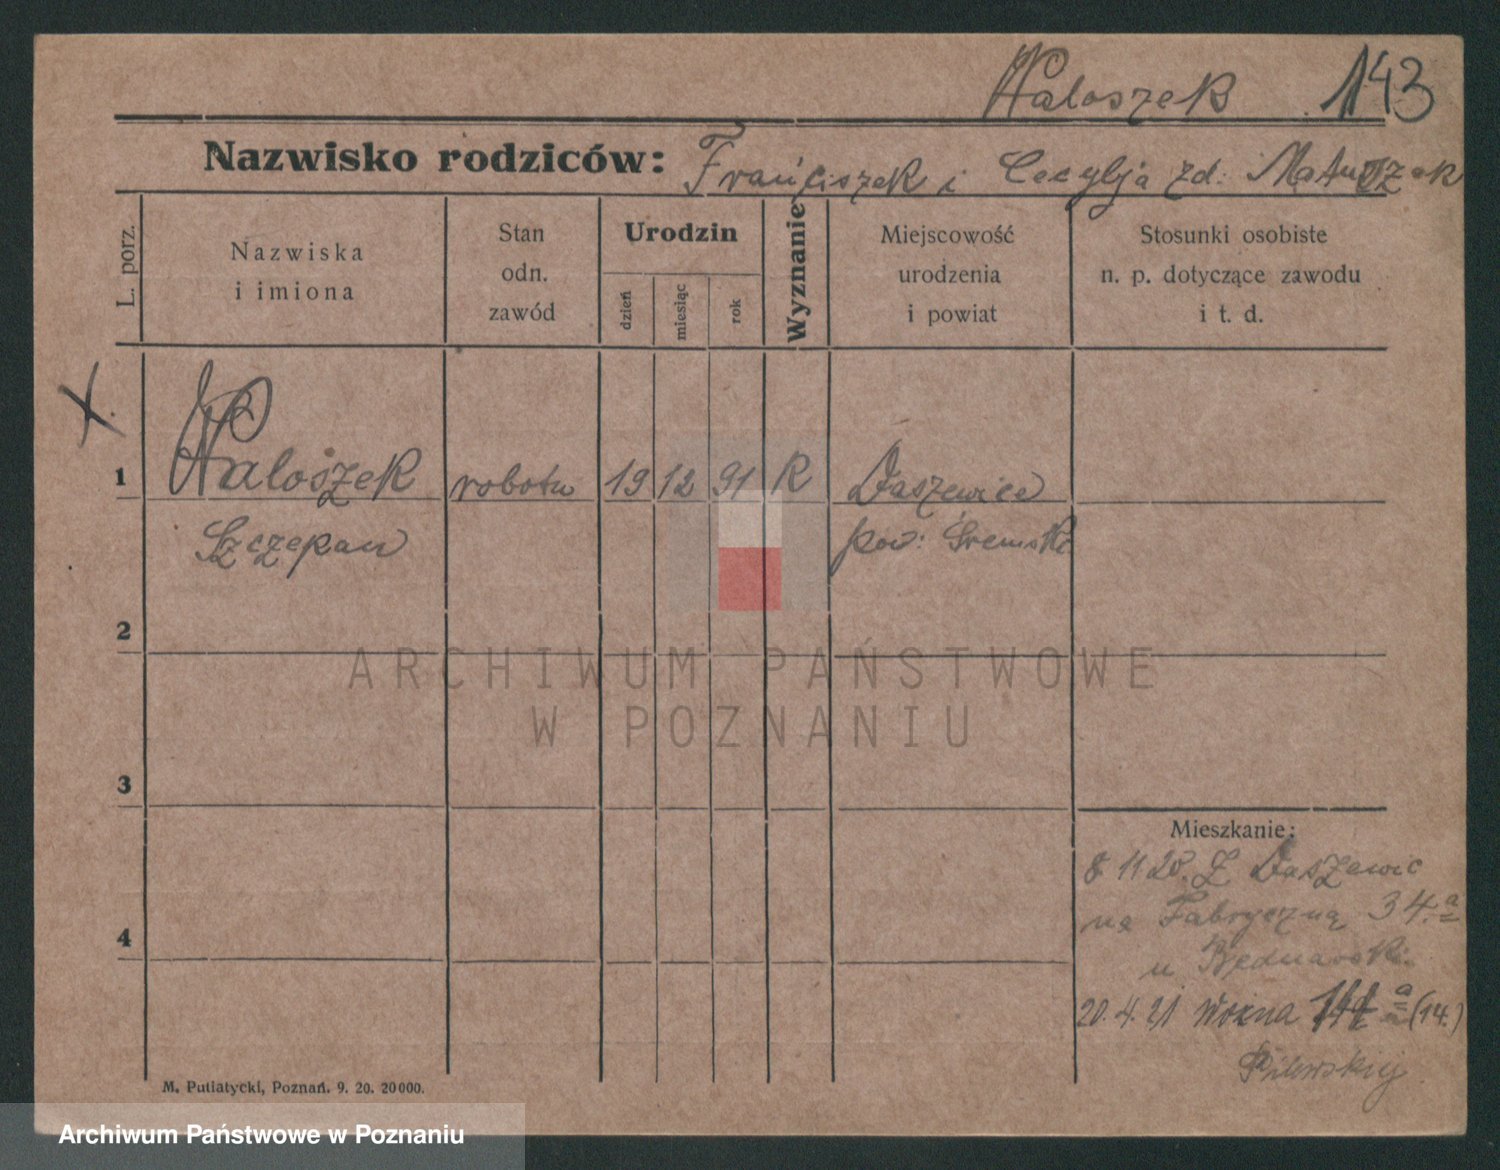 Waloszek 143
Nazwisko rodziców: Franciszek i Cecylja zd: Matuszak
L. porz.
Nazwiska
i imiona
Stan
odn.
zawód
Urodzin
dzień
miesiąc
rok
Wyznanie
Miejscowość
urodzenia
i powiat
Stosunki osobiste
n. p. dotyczące zawodu
i t. d.
X.
1 Waloszek robotn 19 12 91 R Daszewice
Szczepan pow: Śremski
2
3
4
Mieszkanie:
8 11 20. Z Daszewic
na Fabryczną 34.a
u Bednarski.
20.4.21 Woźna a (14.)
M. Putiatycki, Poznań. 9. 20. 20 000.
ARCHIWUM PAŃSTWOWE
W POZNANIU
Archiwum Państwowe w Poznaniu